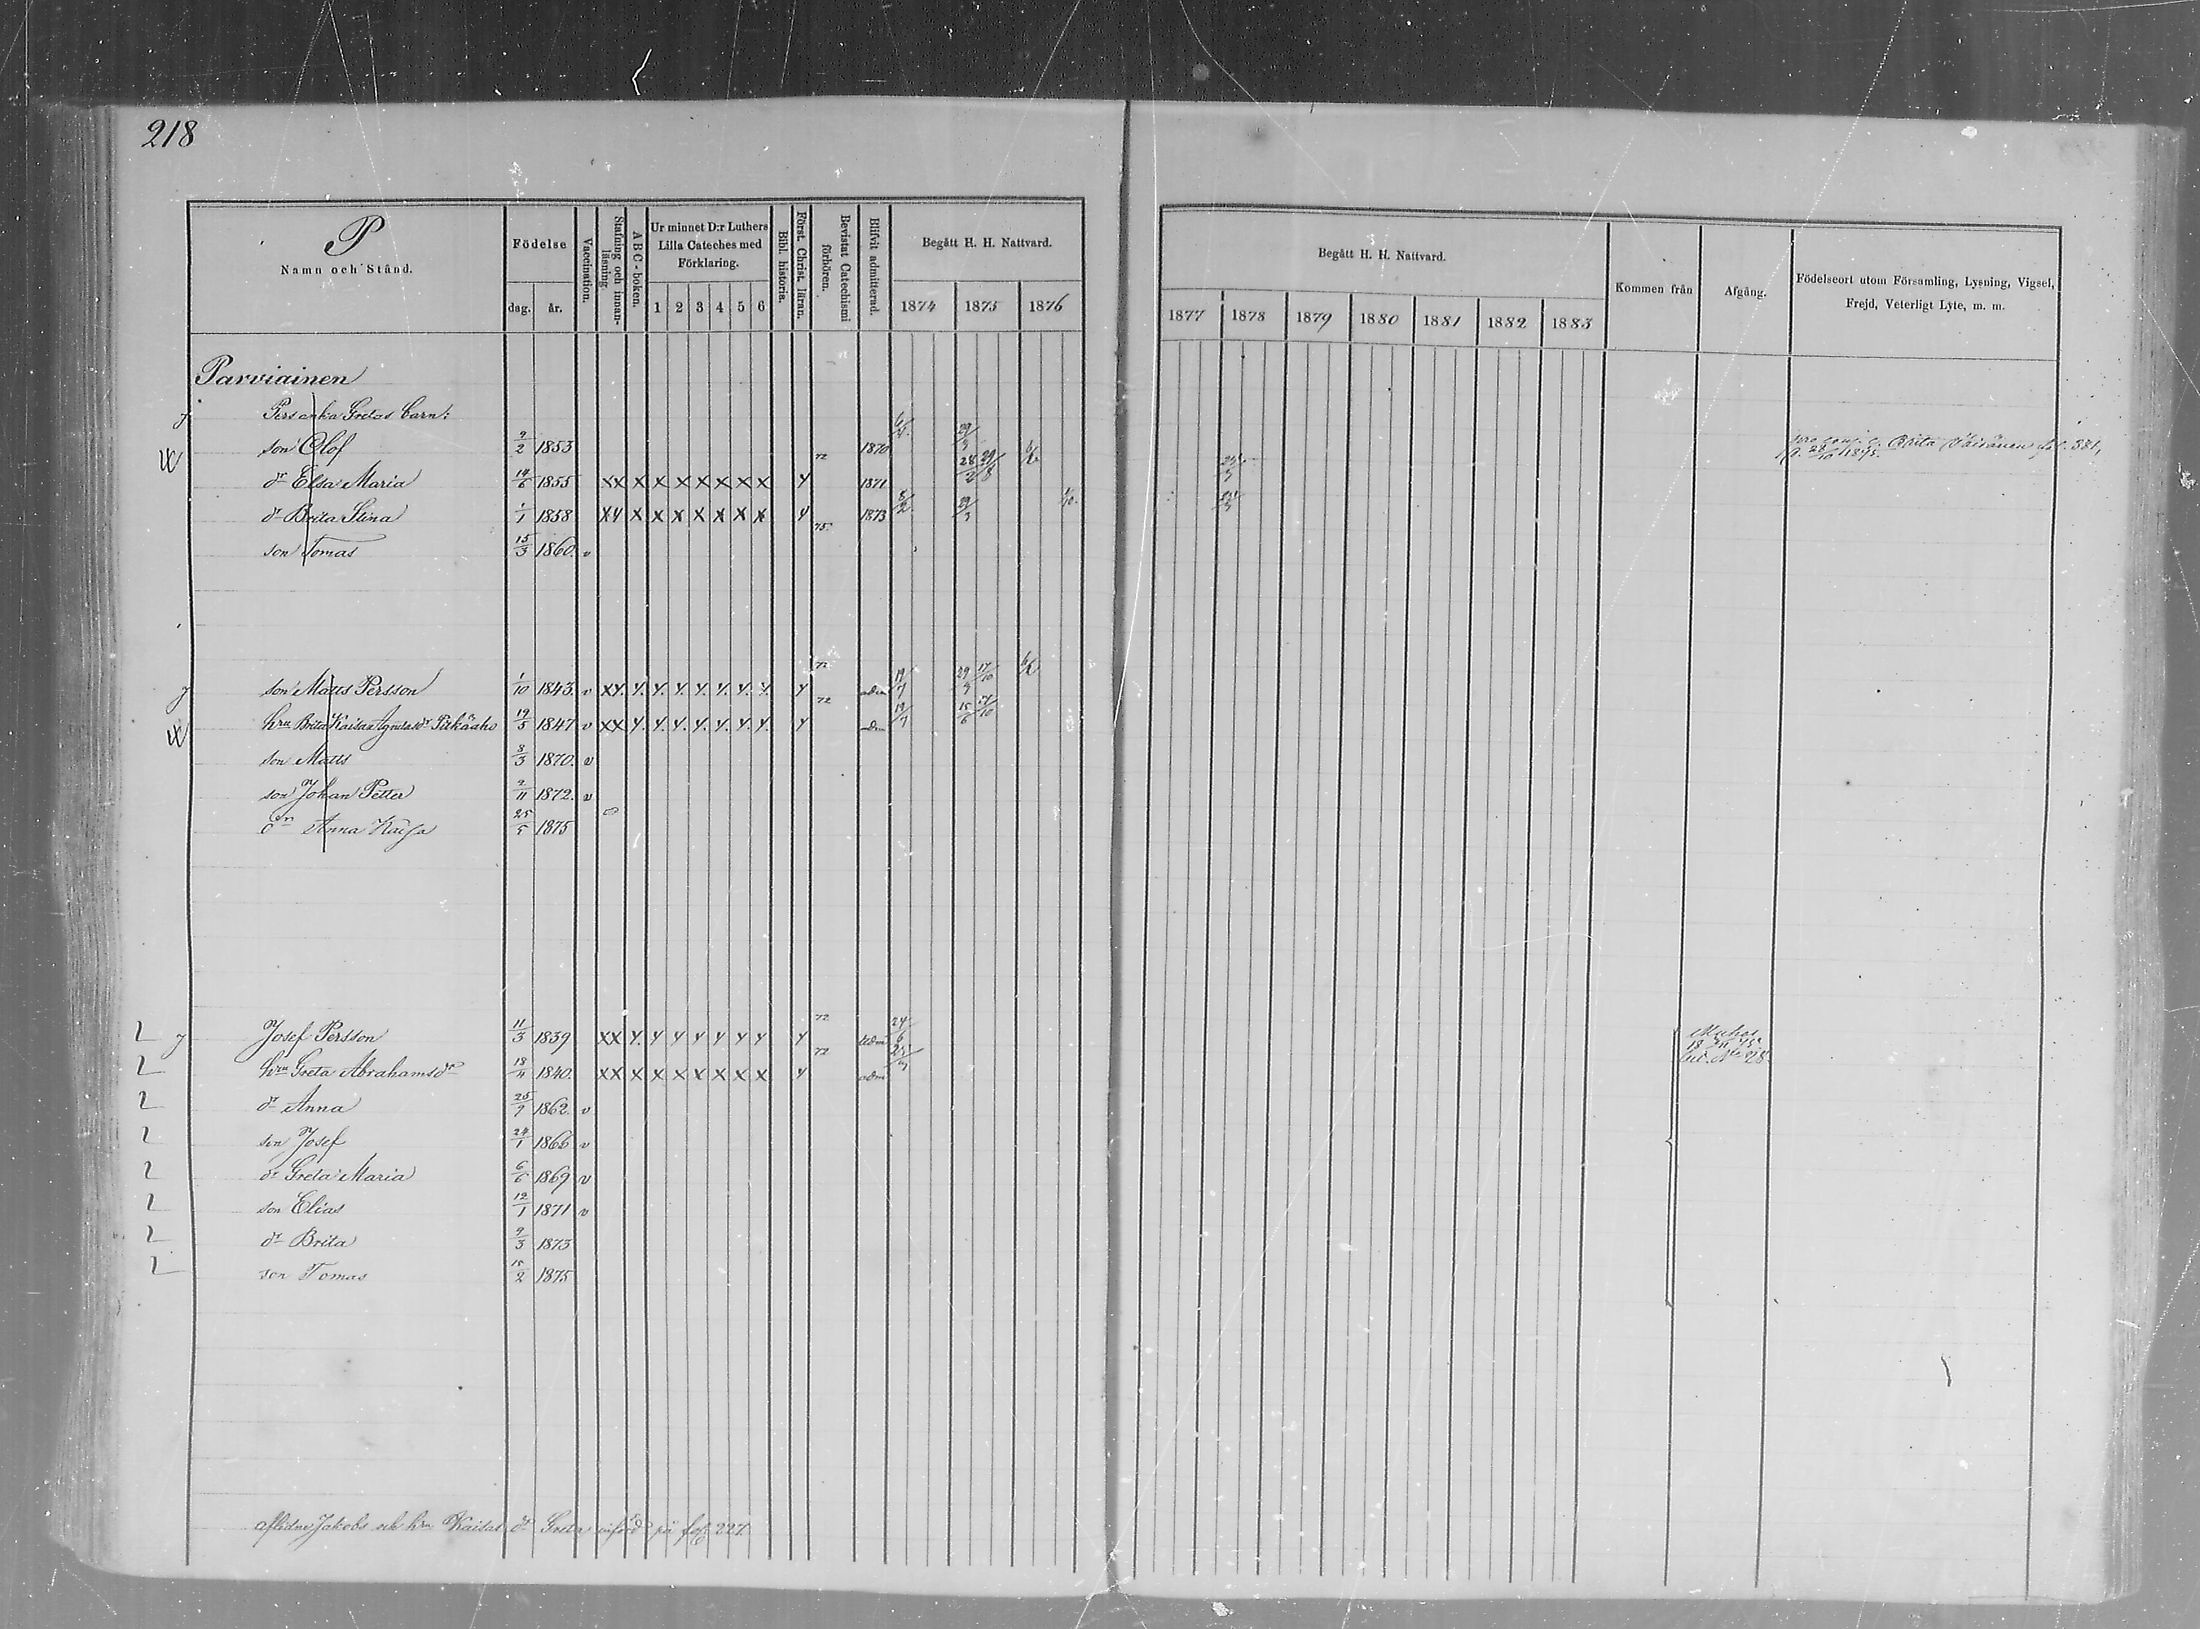 218
P
Namn och Stånd.
Födelse
dag. år.
Vaccination.
Stafning och innanläsning.
ABC-boken.
Ur minnet D:r Luthers Lilla Cateches med Förklaring.
1 2 3 4 5 6
Bibl. historia.
Först. Christ. läran.
Bevistat Catechismi förhören.
Blifvit admitterad.
Begått H. H. Nattvard.
1874 1875 1876
Begått H. H. Nattvard.
1877 1878 1879 1880 1881 1882 1883
Kommen från
Afgång.
Födelseort utom Församling, Lysning, Vigsel,
Frejd, Veterligt Lyte, m. m.
Parviainen
Pers enka Gretas barn:
son Olof 9/2 1853 1870 Brita Väisänen
dr Elsa Maria 14/6 1855 XX X X X X X X X Y 72 1871
dr Brita Stina 1/1 1858 XY X X X X X X X Y 1873
son Tomas 15/3 1860. v 75
son Matts Persson 1/10 1843. v XY. Y. Y. Y. Y. Y. Y. Y. Y 72 adm 19/7 29/3 17/10
hru Brita Kaisa dr Pitkäaho 19/5 1847 v XX Y. Y. Y. Y. Y. Y. Y. Y 72 adm 19/7 15/6 17/10
son Matts 8/3 1870. v
son Johan Petter 9/11 1872. v
dr Anna Kaisa 25/5 1875
Josef Persson 11/3 1839 XX Y. Y Y Y Y Y Y Y 72 adm 24/6 Muhos
hru Greta Abrahamsdr 18/11 1840. XX X X X X X X X Y 72 adm
dr Anna 25/9 1862. v
son Josef 24/1 1866 v
dr Greta Maria 6/6 1869 v
son Elias 12/1 1871 v
dr Brita 9/3 1873
son Tomas 15/2 1875
aflidne Jakobs och hru Kaisas dr Greta införd på fol. 227.